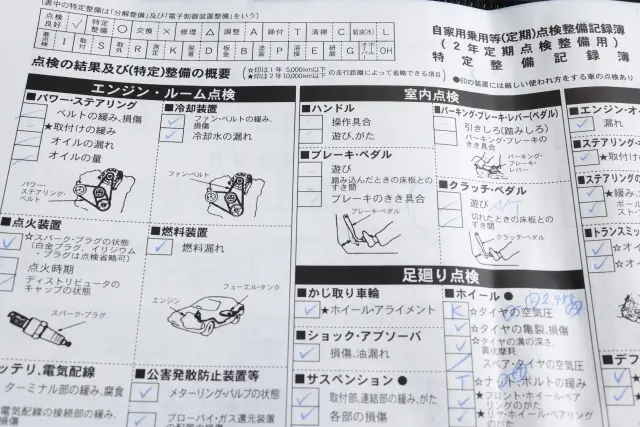 (表中の特定整備は「分解整備」及び「電子制御装置整備」をいう)
点検良好 ✓ 特定整備 ○ 交換 × 修理 △ 調整 A 締付 T 清掃 C 給油(水) L
要点検 I 取外 R 測定 K 亀裂 D 板金 B 塗装 P 溶接 E オーバーホール OH
自家用乗用等(定期)点検整備記録簿
(2年定期点検整備用)
特定整備記録簿
点検の結果及び(特定)整備の概要
☆印は1年 5,000km以下
★印は2年10,000km以下
の走行距離によって省略できる項
●印の装置には厳しい使われ方をする車の点検あり
エンジン・ルーム点検
■パワー・ステアリング
ベルトの緩み、損傷
★取付けの緩み
オイルの漏れ
オイルの量
パワー・ステアリング・ベルト
■冷却装置
ファン・ベルトの緩み、損傷
冷却水の漏れ
ファン・ベルト
■点火装置
☆スパーク・プラグの状態
(白金プラグ、イリジウム・プラグは点検省略可)
点火時期
ディストリビュータのキャップの状態
スパーク・プラグ
■燃料装置
燃料漏れ
フューエル・タンク
エンジン
ッテリ、電気配線
ターミナル部の緩み、腐食
電気配線の接続部の緩み、
■公害発散防止装置等
メターリング・バルブの状態
ブローバイ・ガス還元装置
室内点検
■ハンドル
操作具合
遊び、がた
■ブレーキ・ペダル
遊び
踏み込んだときの床板とのすき間
ブレーキのきき具合
ブレーキ・ペダル
■パーキング・ブレーキ・レバー(ペダル)
引きしろ(踏みしろ)
パーキング・ブレーキのきき具合
パーキング・ブレーキ・レバー
■クラッチ・ペダル
遊び A/T
切れたときの床板とのすき間
クラッチ・ペダル
足廻り点検
■かじ取り車輪
★ホイール・アライメント
■ショック・アブソーバ
損傷、油漏れ
■サスペンション ●
取付部、連結部の緩み、がた
各部の損傷
■ホイール ●
K ☆タイヤの空気圧
☆タイヤの亀裂、損傷
☆タイヤの溝の深さ、異状摩耗
スペア・タイヤの空気圧
T ☆ナット、ボルトの緩み
★フロント・ホイール・ベアリングのがた
★リヤ・ホイール・ベアリングのがた
■エンジン・オ
漏れ
■ステアリング
★取付け
■ステアリングの
★緩み、
■トランスミッ
☆オイ
☆オイ
■デフ